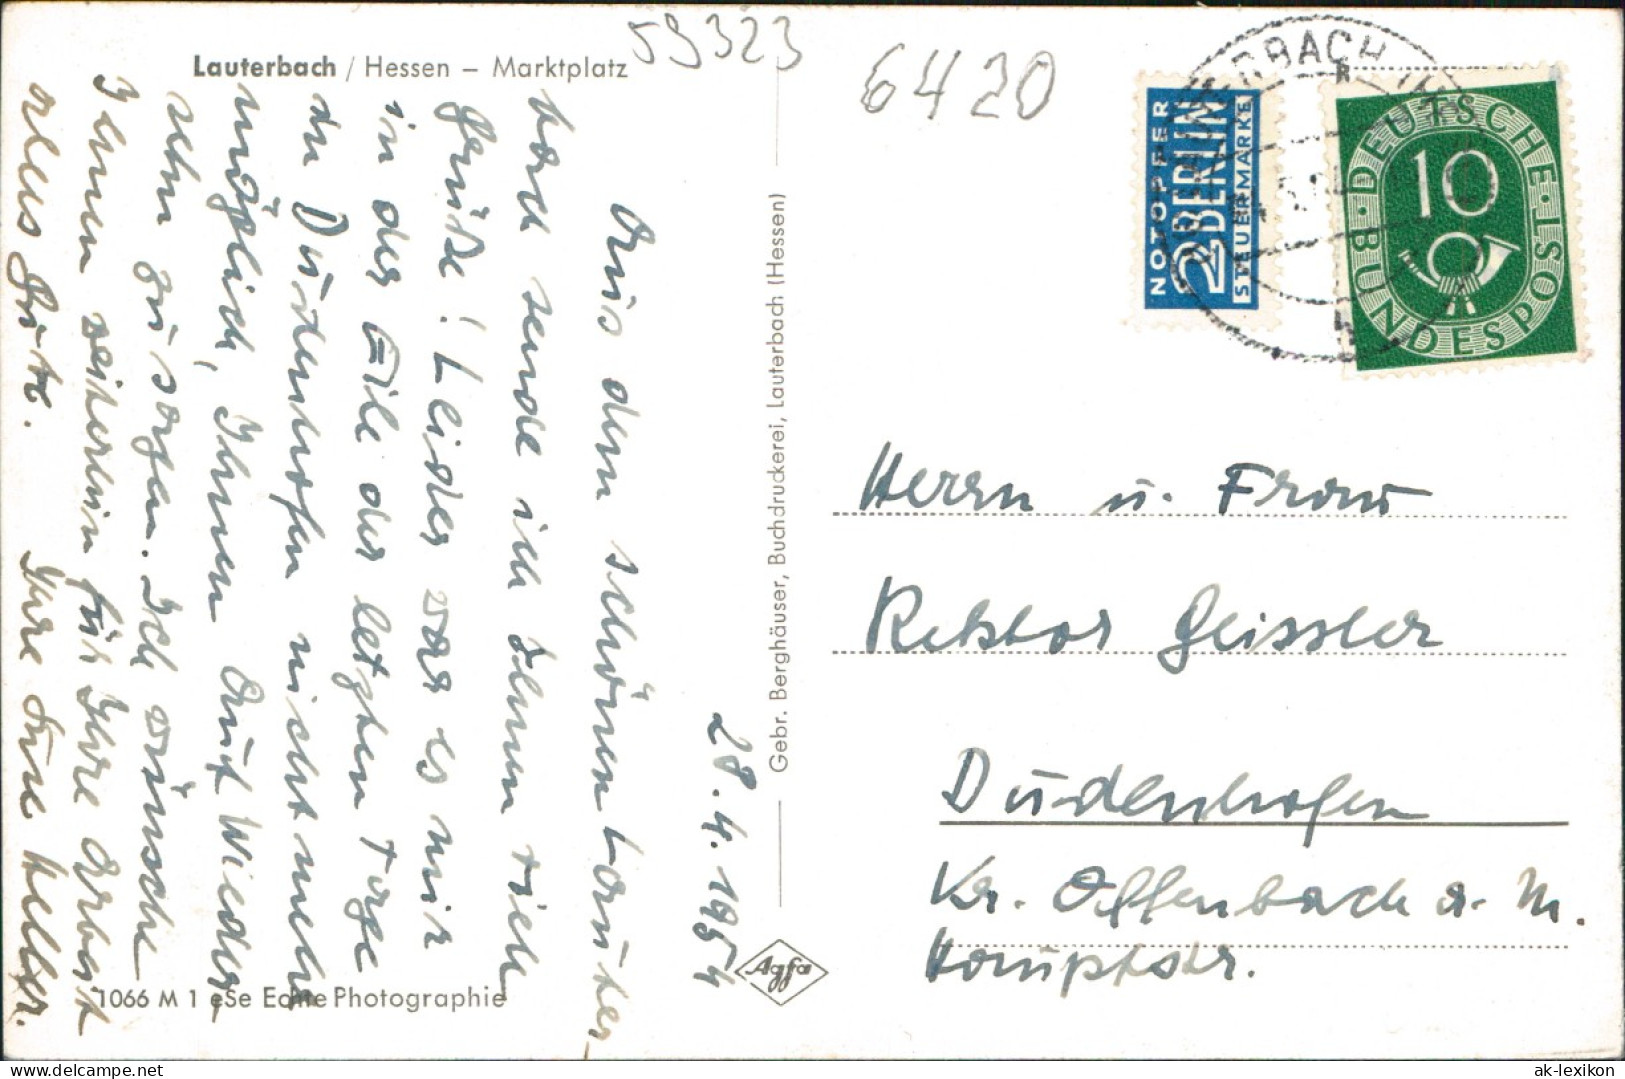 Lauterbach / Hessen – Marktplatz
59323
6420
28.4.1954
Aus dem schönen Lauter-
bach sende ich Ihnen viele
Grüße! Leider war es mir
in der Eile der letzten Tage
in Dudenhofen nicht mehr
möglich, Ihnen Auf Wieder-
sehn zu sagen. Ich wünsche
Ihnen weiterhin für Ihre Arbeit
alles Gute. Ihre
1066 M 1 eSe Echte Photographie
Gebr. Berghäuser, Buchdruckerei, Lauterbach (Hessen)
Agfa
NOTOPFER
2 BERLIN
STEUERMARKE
DEUTSCHE BUNDESPOST
10
Herrn u. Frau
Rektor Geissler
Dudenhofen
Kr. Offenbach a. M.
Hauptstr.
ak-lexikon